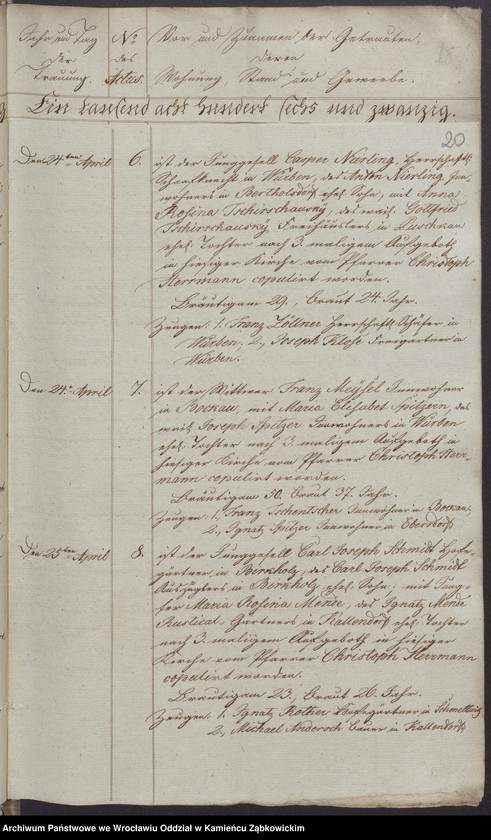 Jahr und Tag
der
Trauung.
No
des
Actus.
Vor und Zunamen der Getrauten.
deren
Wohnung, Stand und Gewerbe.
Ein tausend acht hundert sechs und zwanzig.
20
Den 24ten April
6.
ist der Junggesell Casper Nierling, Herrschaftl.
Schaafknecht in Würben, des Anton Nierling Inn-
wohners in Bertholsdorf ehel. Sohn, mit Anna
Rosina Tschirschausky, des weil. Gottfried
Tschirschausky, Freihäuslers in Puschkau
ehel. Tochter nach 3. maligem Aufgeboth
in hiesiger Kirche vom Pfarrer Christoph
Herrmann copulirt worden.
Bräutigam 29., Braut 24. Jahr.
Zeugen: 1. Franz Zöllner Herrschaftl. Schäfer in
Würben. 2., Joseph Klose Freigärtner in
Würben.
Den 24. April
7.
ist der Wittwer Franz Meysel Innwohner
in Bockau, mit Maria Elisabet Spitzern, des
weil. Joseph Spitzer Innwohners in Würben
ehel. Tochter nach 3. maligem Aufgeboth in
hiesiger Kirche vom Pfarrer Christoph Herr-
mann copulirt worden.
Bräutigam 30. Braut 37. Jahr.
Zeugen: 1., Franz Tschentscher Innwohner in Bockau,
2., Ignatz Spitzer Innwohner in Ebersdorf
Den 25ten April
8.
ist der Junggesell Carl Joseph Schmidt
gärtner in Birkholz, des Carl Joseph Schmidt
Auszüglers in Birkholz ehel. Sohn, mit Jung-
fer Maria Rosina Mende, des Ignatz Mende
Rustical Gärtners in Kallendorf ehel. Tochter
nach 3. maligem Aufgeboth in hiesiger
Kirche vom Pfarrer Christoph Herrmann
copulirt worden.
Bräutigam 23., Braut 26. Jahr.
Zeugen: 1. Ignatz Rother gärtner in Schmellwitz
2., Michael Andersch Bauer in Kallendorf
Archiwum Państwowe we Wrocławiu Oddział w Kamieńcu Ząbkowickim